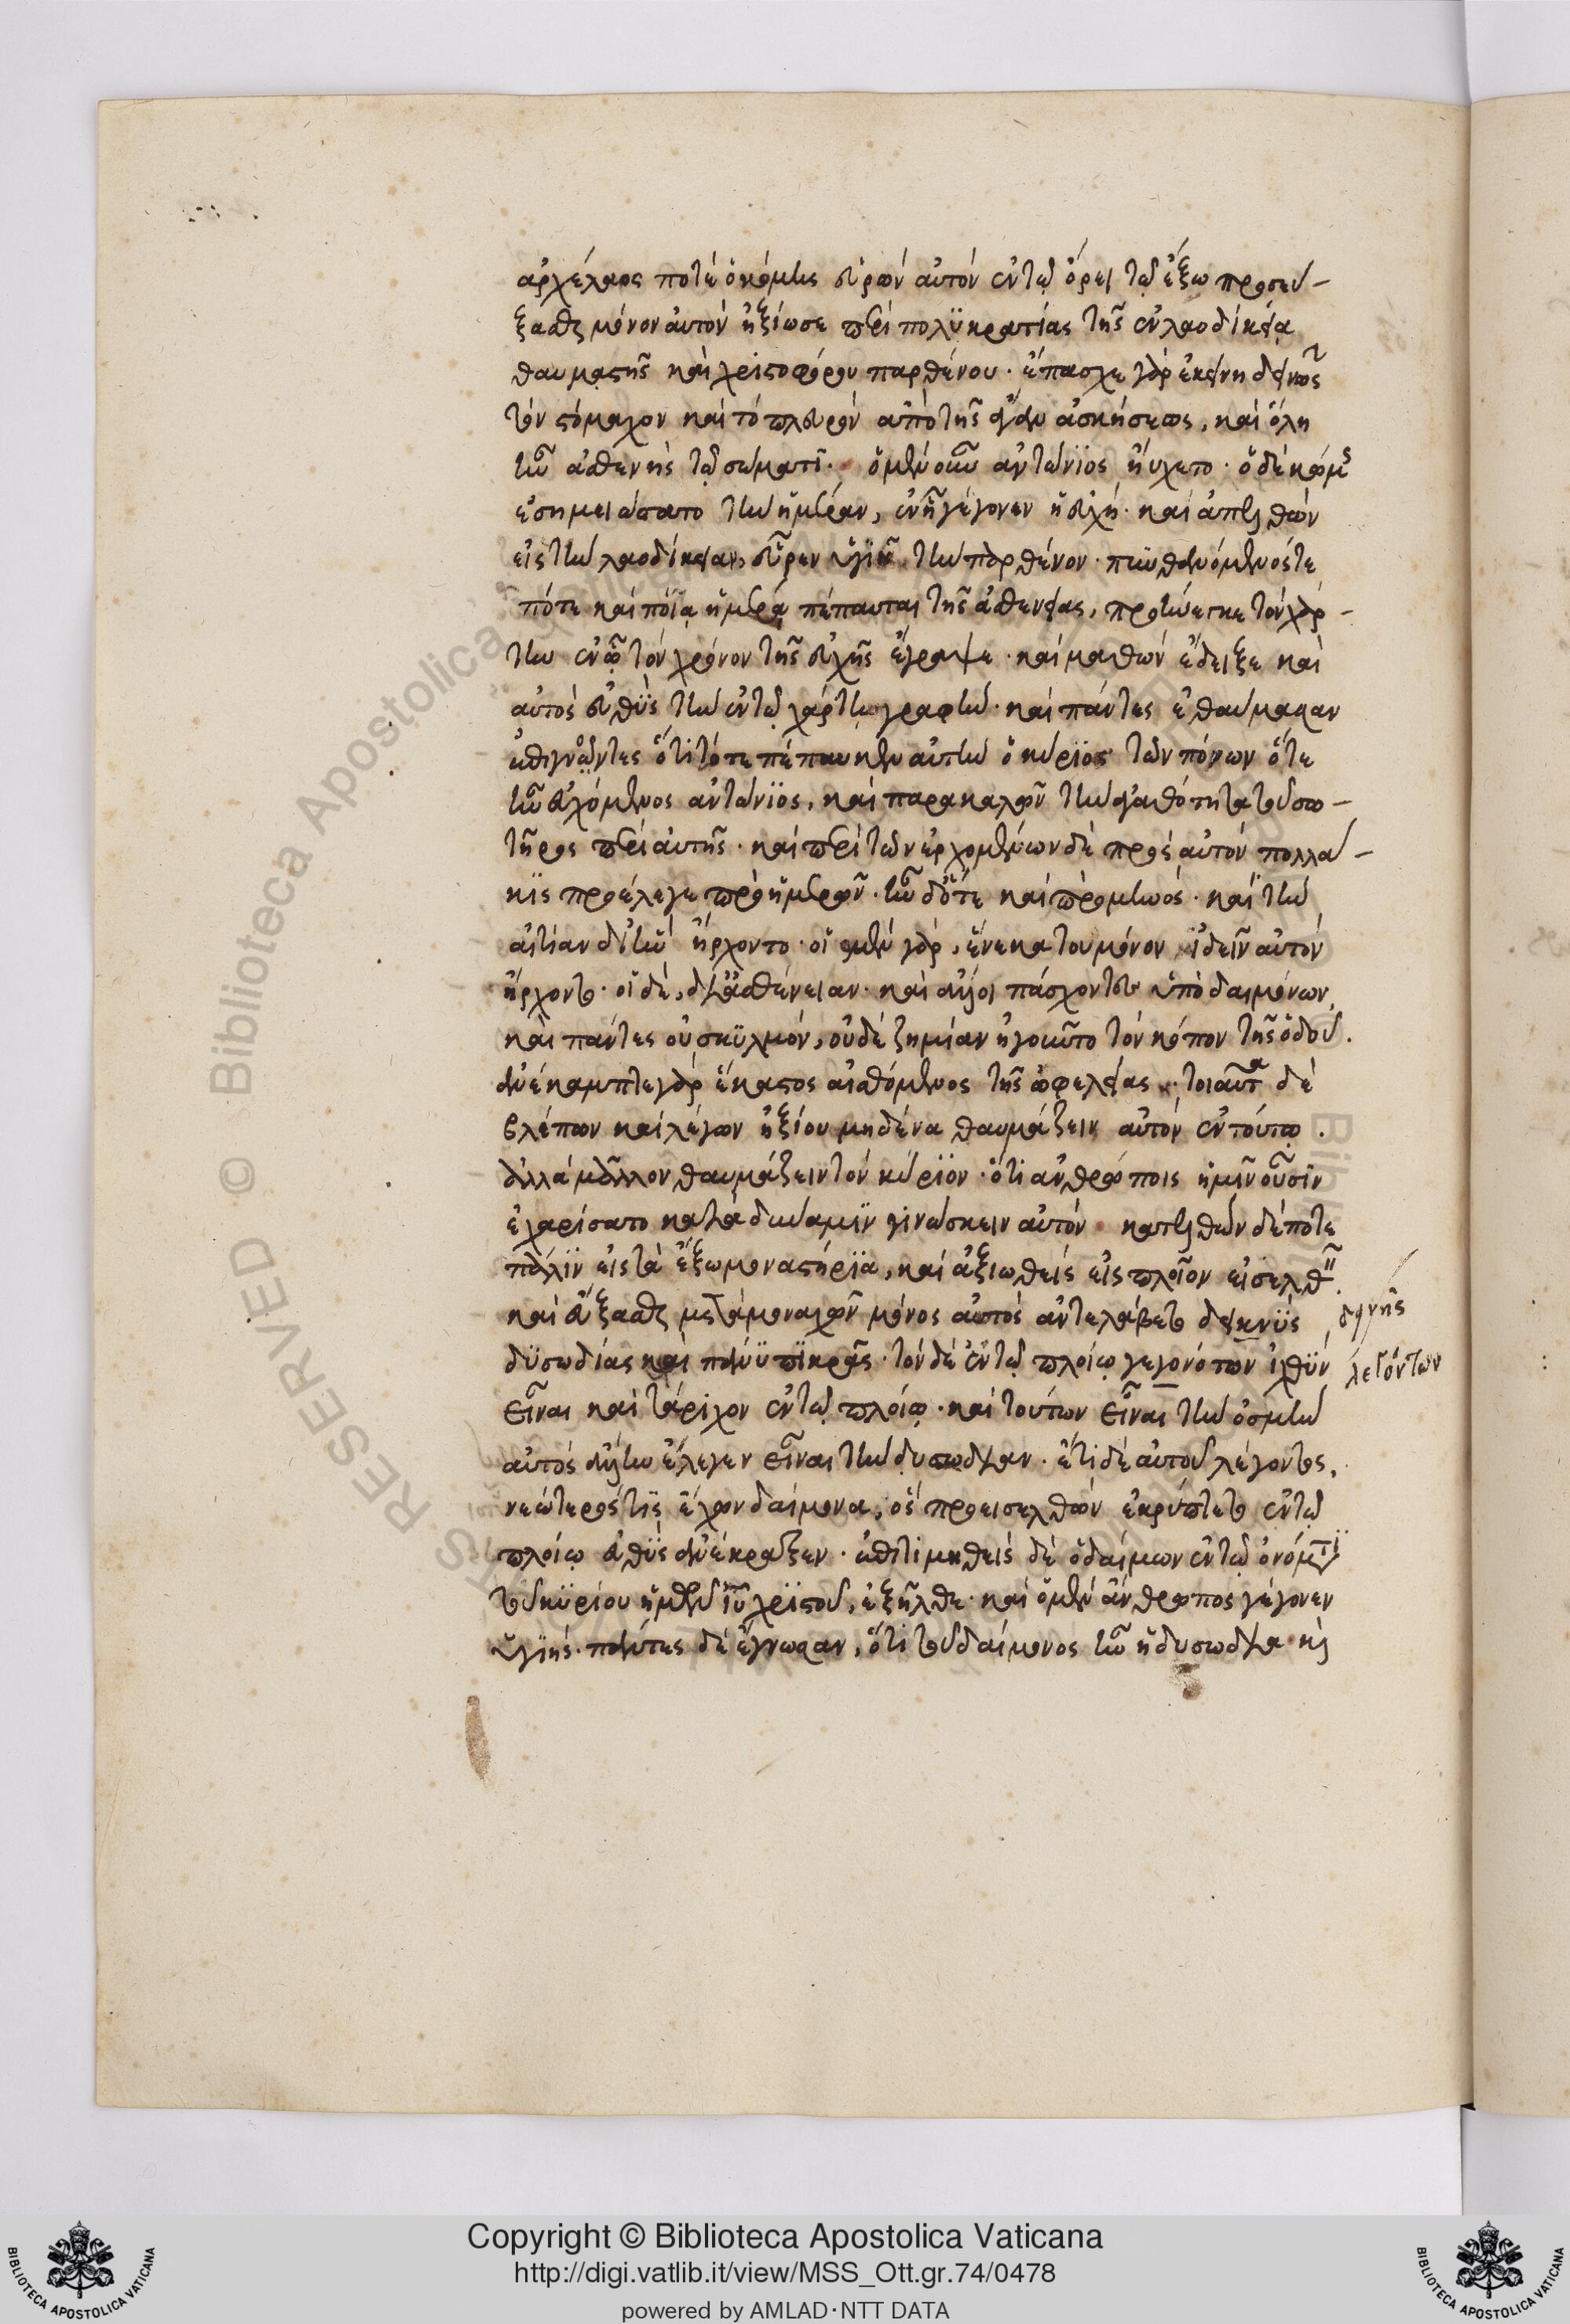 ἀρχέλαος ποτὲ ὁ κόμης εὑρὼν αὐτὸν ἐν τῷ ὄρει τῷ ἔξω προσεύ-
ξασθαι μόνον αὐτὸν ἠξίωσε περὶ πολϋκρατίας τῆς ἐν λαοδικείᾳ
θαυμαστῆς καὶ χριστοφόρου παρθένου· ἔπασχε γὰρ ἐκείνη δεινῶς
τὸν στόμαχον καὶ τὸ πλευρὸν ἀπὸ τῆς ἄγαν ἀσκήσεως, καὶ ὅλη
ἦν ἀσθενὴς τῷ σώματι· ὁ μὲν οὖν ἀντώνϊος ηὔχετο· ὁ δὲ κόμης
ἐσημειώσατο τὴν ἡμέραν, ἐν ᾗ γέγονεν ἡ εὐχή· καὶ ἀπελθὼν
εἰς τὴν λαοδίκειαν, εὗρεν ὑγιῆ τὴν παρθένον· πϋνθανόμενός τε
πότε καὶ ποίᾳ ἡμέρᾳ πέπαυται τῆς ἀσθενείας, προήνεγκε τὸν χάρ-
την ἐν ᾧ τὸν χρόνον τῆς εὐχῆς ἔγραψε· καὶ μαθὼν ἔδειξε καὶ
αὐτὸς εὐθὺς τὴν ἐν τῷ χάρτῃ γραφήν· καὶ πάντες ἐθαύμασαν
ἐπιγνόντες ὅτι τότε πέπαυκεν αὐτὴν ὁ κύριος τῶν πόνων ὅτε
ἦν εὐχόμενος ἀντώνϊος, καὶ παρακαλῶν τὴν ἀγαθότητα τοῦ σω-
τῆρος περὶ αὐτῆς· καὶ περὶ τῶν ἐρχομένων δὲ πρὸς αὐτὸν πολλά-
κϊς προέλεγε πρὸ ἡμερῶν· ἦν δ' ὅτε καὶ πρὸ μηνός· καὶ τὴν
αἰτίαν δι' ἣν ἤρχοντο· οἱ μὲν γὰρ, ἕνεκα τοῦ μόνον ἰδεῖν αὐτὸν
ἤρχοντο· οἱ δὲ, δι' ἀσθένειαν· καὶ ἄλλοι πάσχοντες ὑπὸ δαιμόνων,
καὶ πάντες οὐ σκϋλμόν, οὐδὲ ζημίαν ἡγοῦντο τὸν κόπον τῆς ὁδοῦ.
ἀνέκαμπτε γὰρ ἕκαστος αἰσθόμενος τῆς ὠφελείας· τοιαῦτα δὲ
βλέπων καὶ λέγων ἠξίου μηδένα θαυμάζειν αὐτὸν ἐν τούτῳ.
ἀλλὰ μᾶλλον θαυμάζειν τὸν κύριϊον· ὅτι ἀνθρώποις ἡμῖν οὖσϊν
ἐχαρίσατο κατὰ δύναμϊν γινώσκειν αὐτόν· κατελθὼν δέ ποτε
πάλϊν εἰς τὰ ἔξω μοναστήρϊα, καὶ ἀξιωθεὶς εἰς πλοῖον εἰσελθεῖν
καὶ εὔξασθαι μετὰ μοναχῶν μόνος αὐτὸς ἀντελάβετο δεικνὺς δεινῆς
δϋσωδίας καὶ πάνυ πϊκρᾶς· τῶν δὲ ἐν τῷ πλοίῳ γεγονότων ἰχθὺν λεγόντων
εἶναι καὶ τάριχον ἐν τῷ πλοίῳ· καὶ τούτων εἶναι τὴν ὀσμὴν
αὐτὸς ἄλλην ἔλεγεν εἶναι τὴν δυσωδίαν· ἔτι δὲ αὐτοῦ λέγοντος,
νεώτερός τϊς ἔχων δαίμονα, ὃς προεισελθὼν ἐκρύπτετο ἐν τῷ
πλοίῳ εὐθὺς ἀνέκραξεν· ἐπιτιμηθεὶς δὲ ὁ δαίμων ἐν τῷ ὀνόματι
τοῦ κϋρίου ἡμῶν ἰῦ χρϊστοῦ, ἐξῆλθε· καὶ ὁ μὲν ἄνθρωπος γέγονεν
ὑγϊής· πάντες δὲ ἔγνωσαν, ὅτι τοῦ δαίμονος ἦν ἡ δυσωδία· καὶ
Copyright © Biblioteca Apostolica Vaticana
http://digi.vatlib.it/view/MSS_Ott.gr.74/0478
powered by AMLAD·NTT DATA